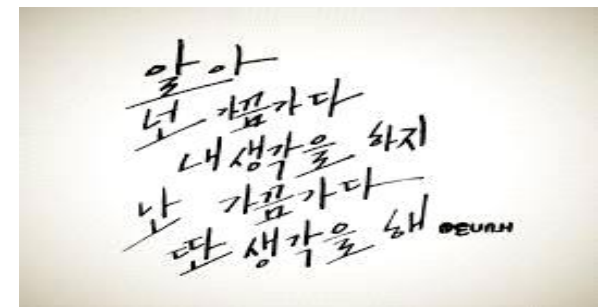 알아
넌 가끔가다
내생각을 하지
난 가끔가다
딴 생각을 해 @EUNAH